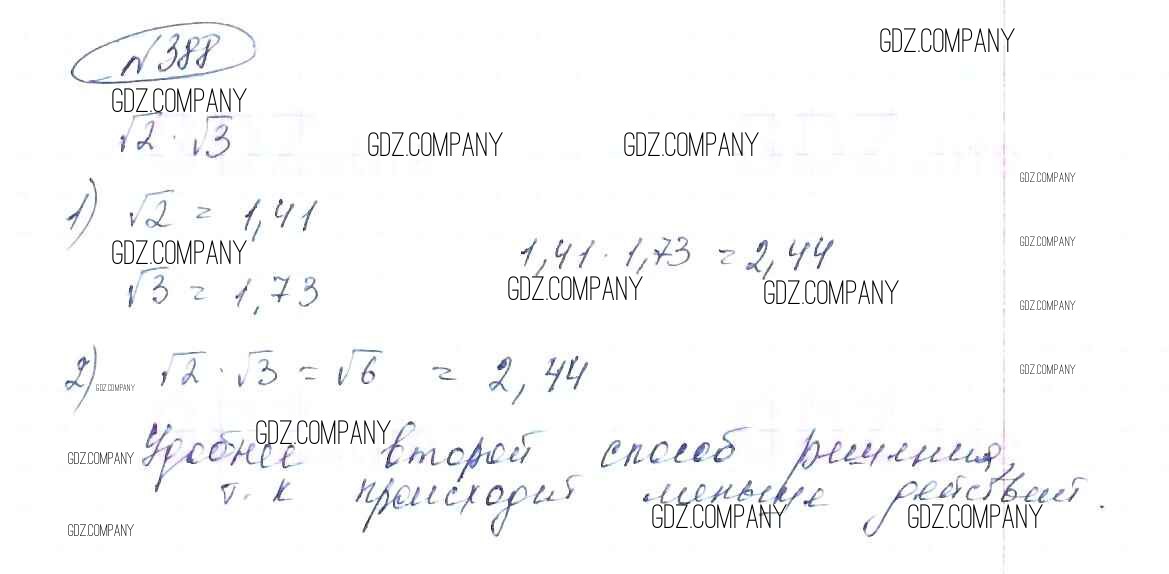 №388
GDZ.COMPANY
GDZ.COMPANY
√2 · √3
GDZ.COMPANY GDZ.COMPANY
GDZ.COMPANY
1) √2 = 1,41
GDZ.COMPANY
1,41 · 1,73 = 2,44
GDZ.COMPANY
√3 = 1,73
GDZ.COMPANY GDZ.COMPANY
GDZ.COMPANY
2) √2 · √3 = √6 = 2,44
GDZ.COMPANY
GDZ.COMPANY
GDZ.COMPANY
Удобнее второй способ решения,
GDZ.COMPANY
т. к происходит меньше действий.
GDZ.COMPANY GDZ.COMPANY
GDZ.COMPANY